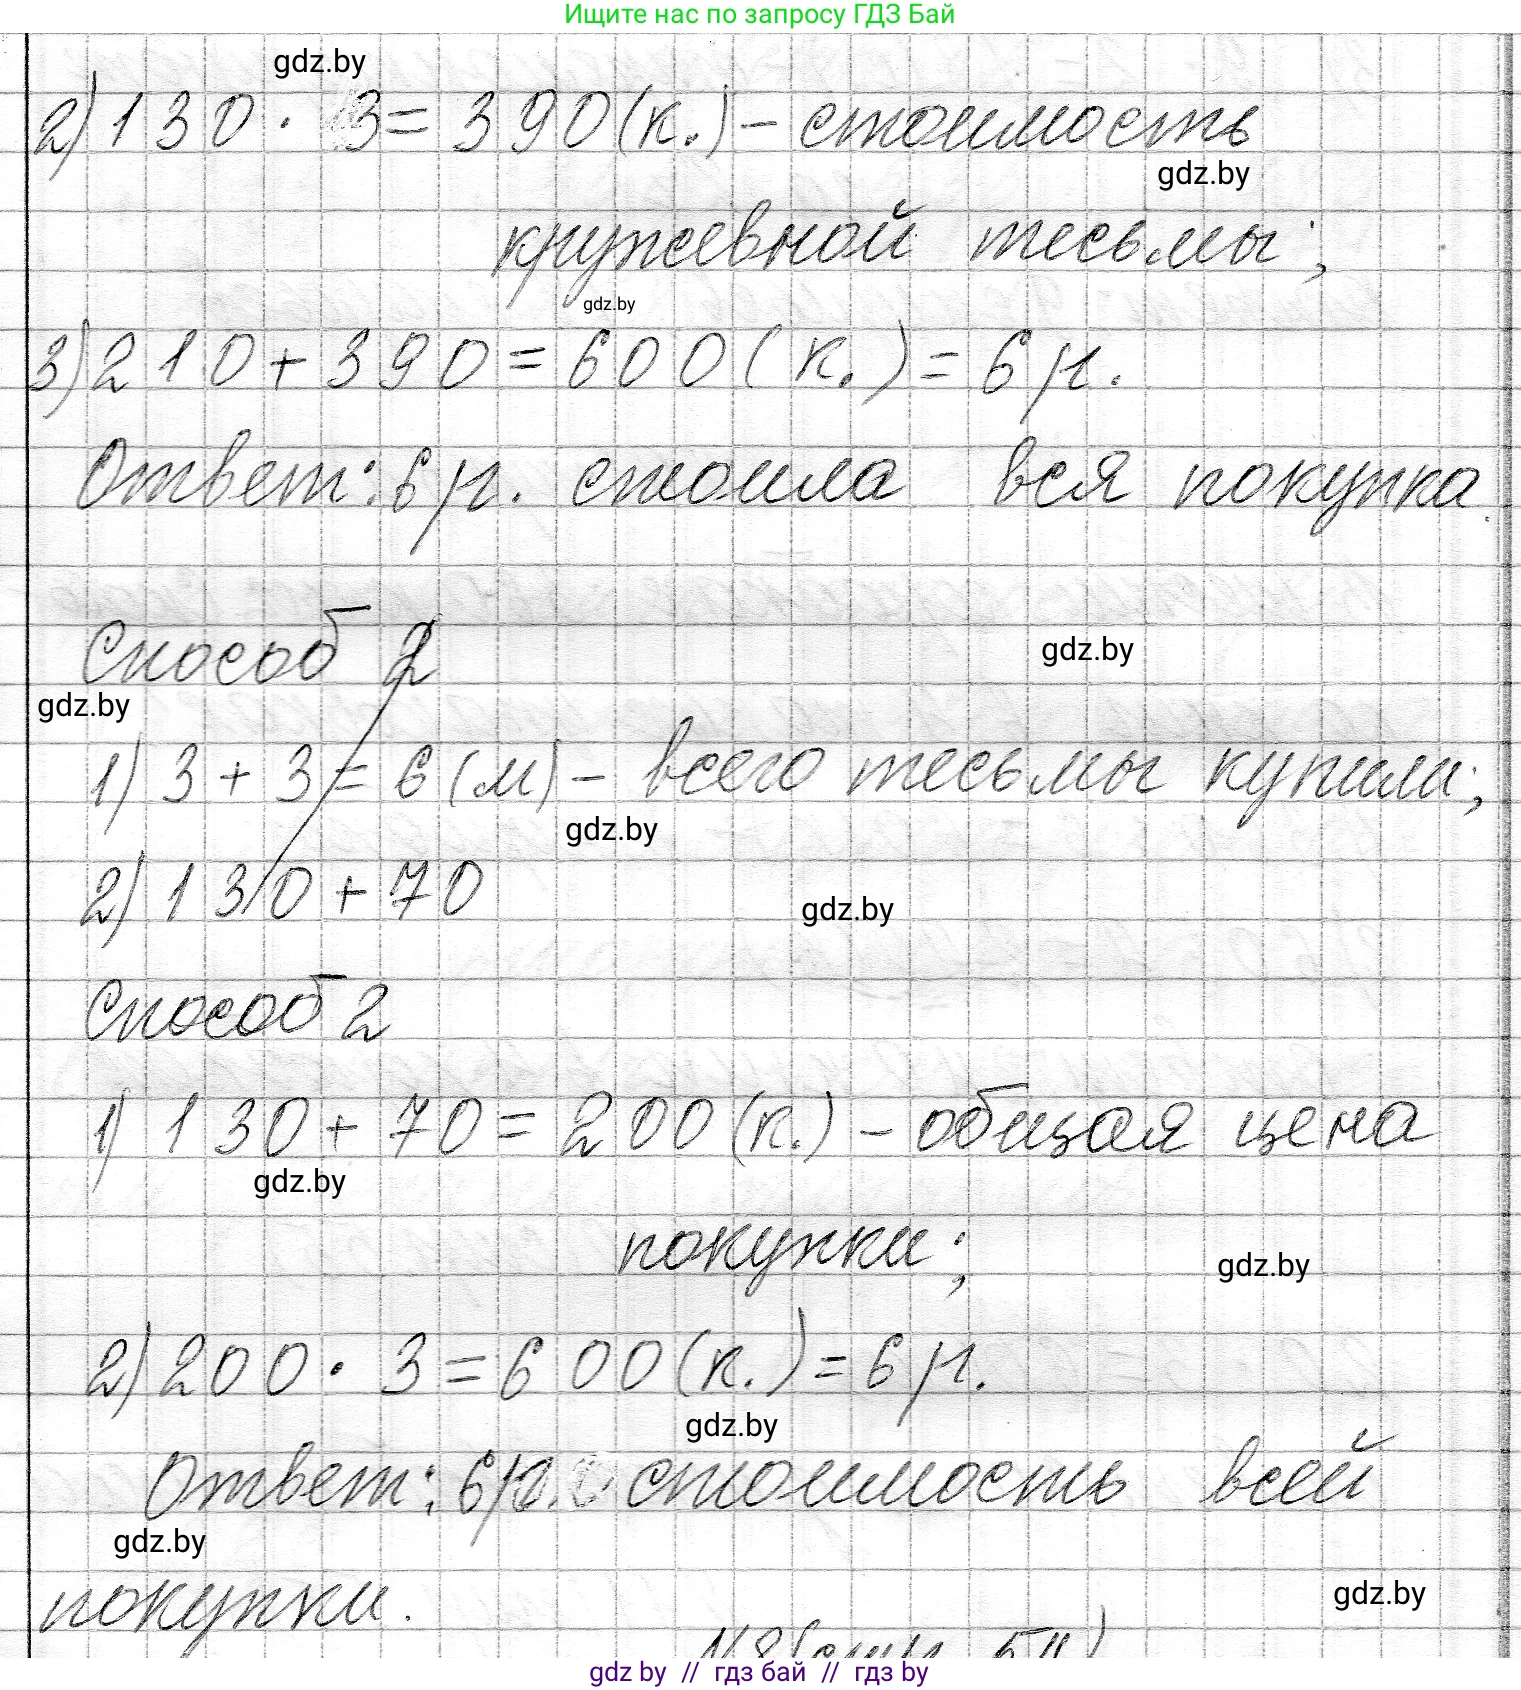 Ищите нас по запросу ГДЗ Бай
gdz.by
2) 130 · 3 = 390 (к.) – стоимость
gdz.by
кружевной тесьмы;
gdz.by
3) 210 + 390 = 600 (к.) = 6 р.
Ответ: 6 р. стоила вся покупка.
Способ 2
gdz.by
gdz.by
1) 3 + 3 = 6 (м) – всего тесьмы купили;
gdz.by
2) 130 + 70
gdz.by
Способ 2
1) 130 + 70 = 200 (к.) – общая цена
gdz.by
покупки;
gdz.by
2) 200 · 3 = 600 (к.) = 6 р.
gdz.by
Ответ: 6 р. стоимость всей
gdz.by
покупки.
gdz.by
gdz by // гдз бай // гдз by